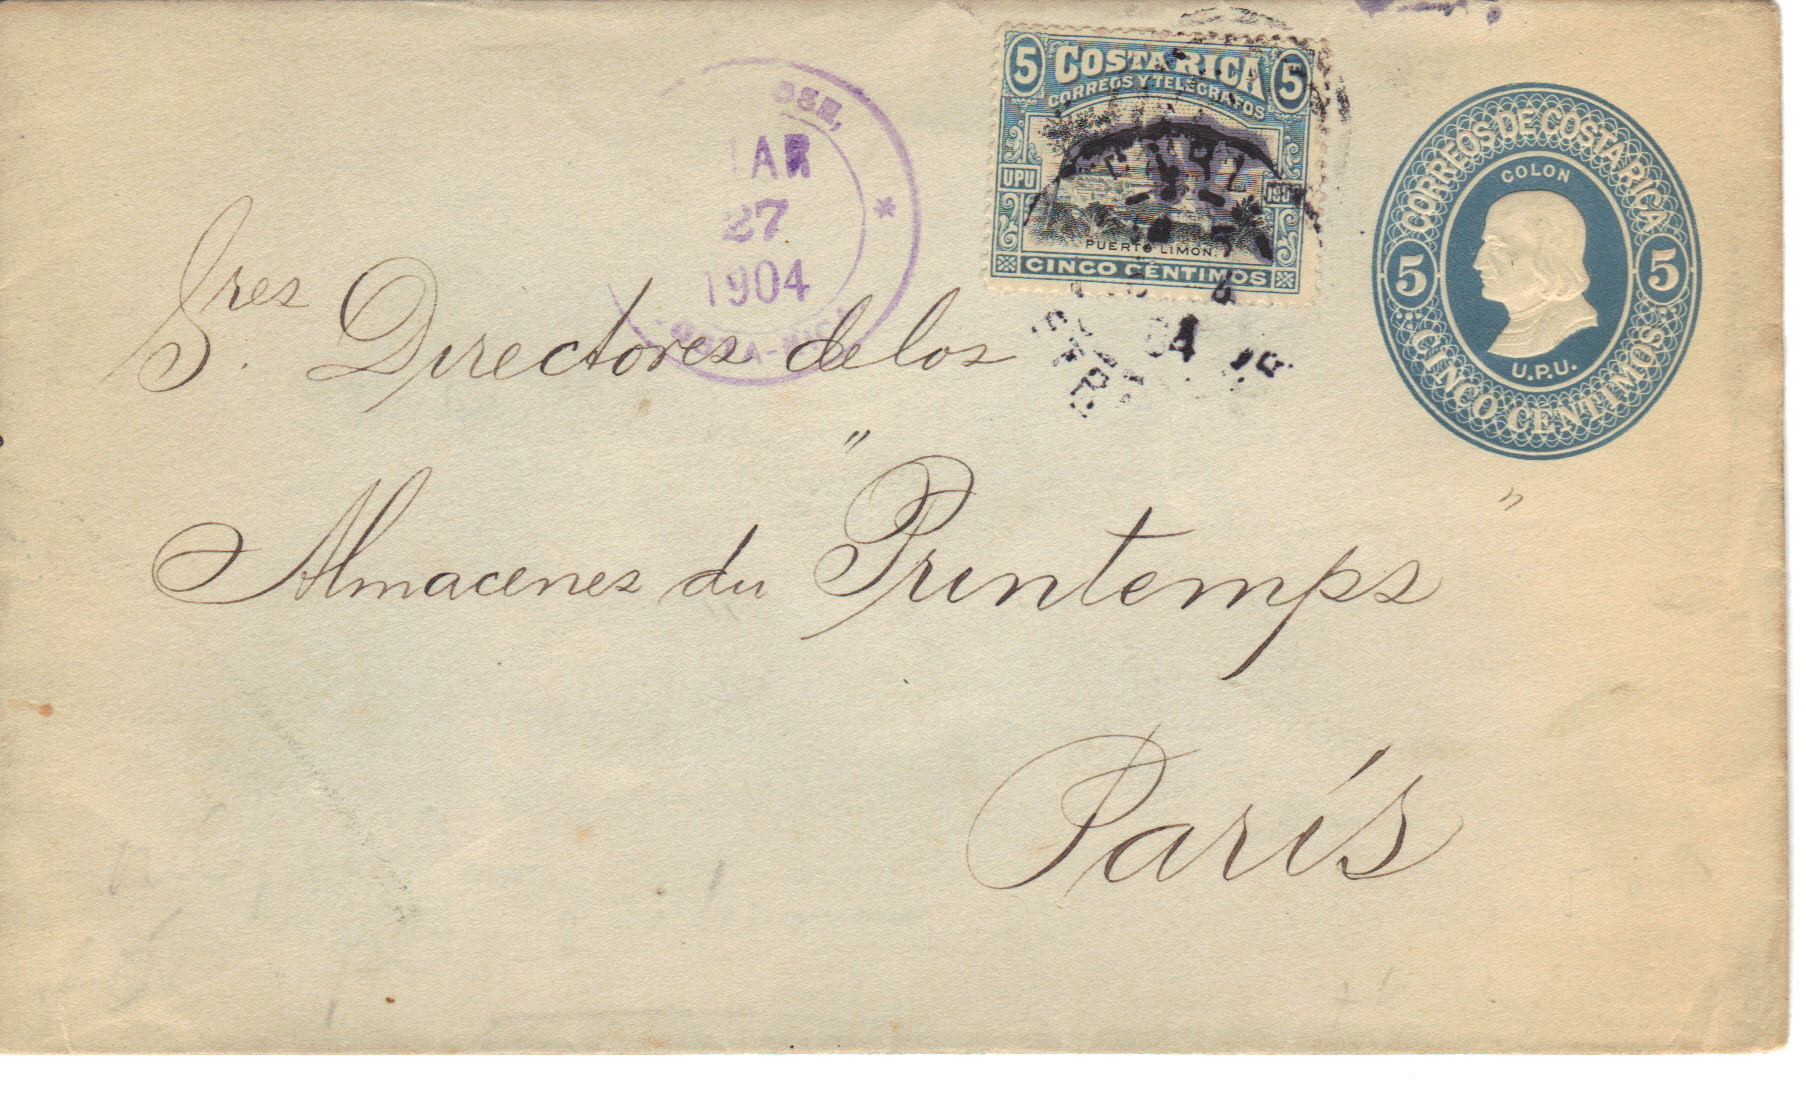 5 COSTA RICA 5
CORREOS Y TELEGRAFOS
UPU
PUERTO LIMON.
CINCO CÉNTIMOS
CORREOS DE COSTA RICA
COLON
5 5
U.P.U.
CINCO CENTIMOS
27
1904
04
Sres. Directores de los
Almacenes du "Printemps"
París